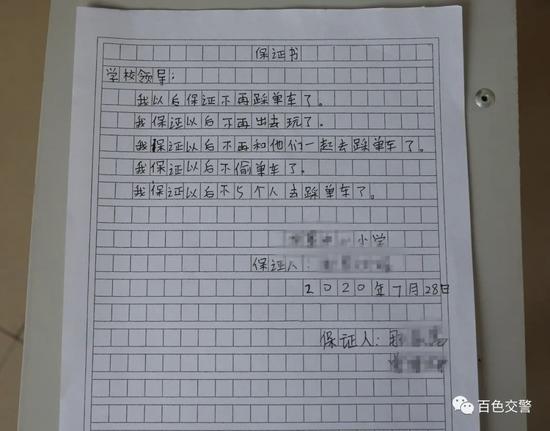 保证书
学校领导:
我以后保证不再踩单车了。
我保证以后不再出去玩了。
我保证以后不再和他们一起去踩单车了。
我保证以后不偷单车了。
我保证以后不5个人去踩单车了。
小学
保证人:
2020年7月28日
保证人:
百色交警